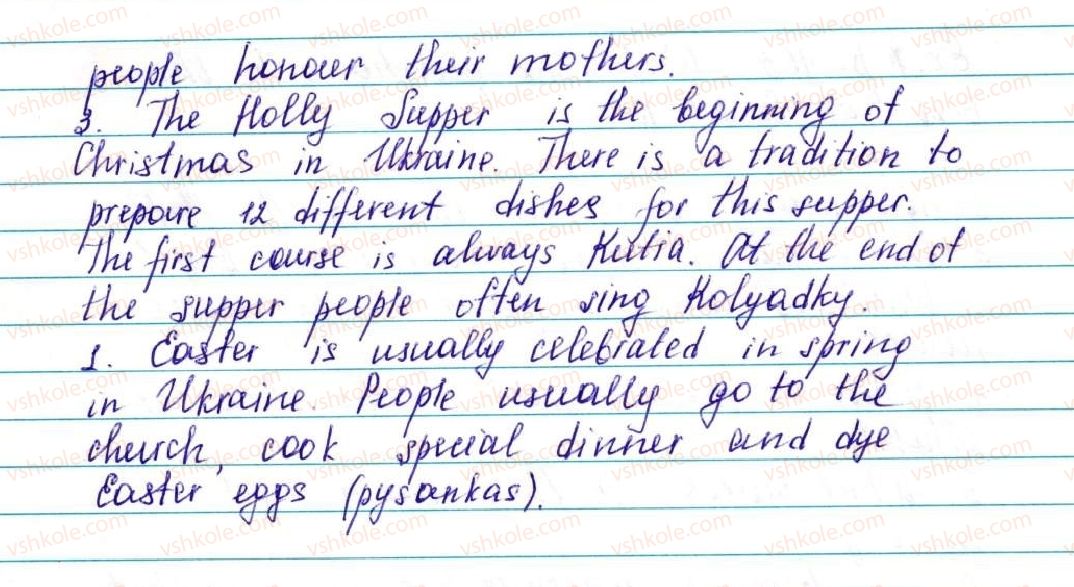 people honour their mothers.
3. The Holly Supper is the beginning of
Christmas in Ukraine. There is a tradition to
prepare 12 different dishes for this supper.
The first course is always Kutia. At the end of
the supper people often sing Kolyadky.
1. Easter is usually celebrated in spring
in Ukraine. People usually go to the
church, cook special dinner and dye
Easter eggs (pysankas).